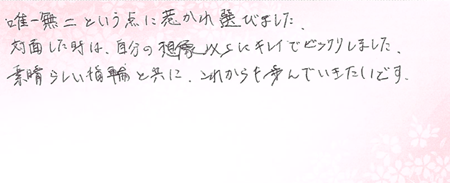 唯一無二という点に惹かれ選びました。
対面した時は、自分の想像以上にキレイでビックリしました。
素晴らしい指輪と共に、これからも歩んでいきたいです。